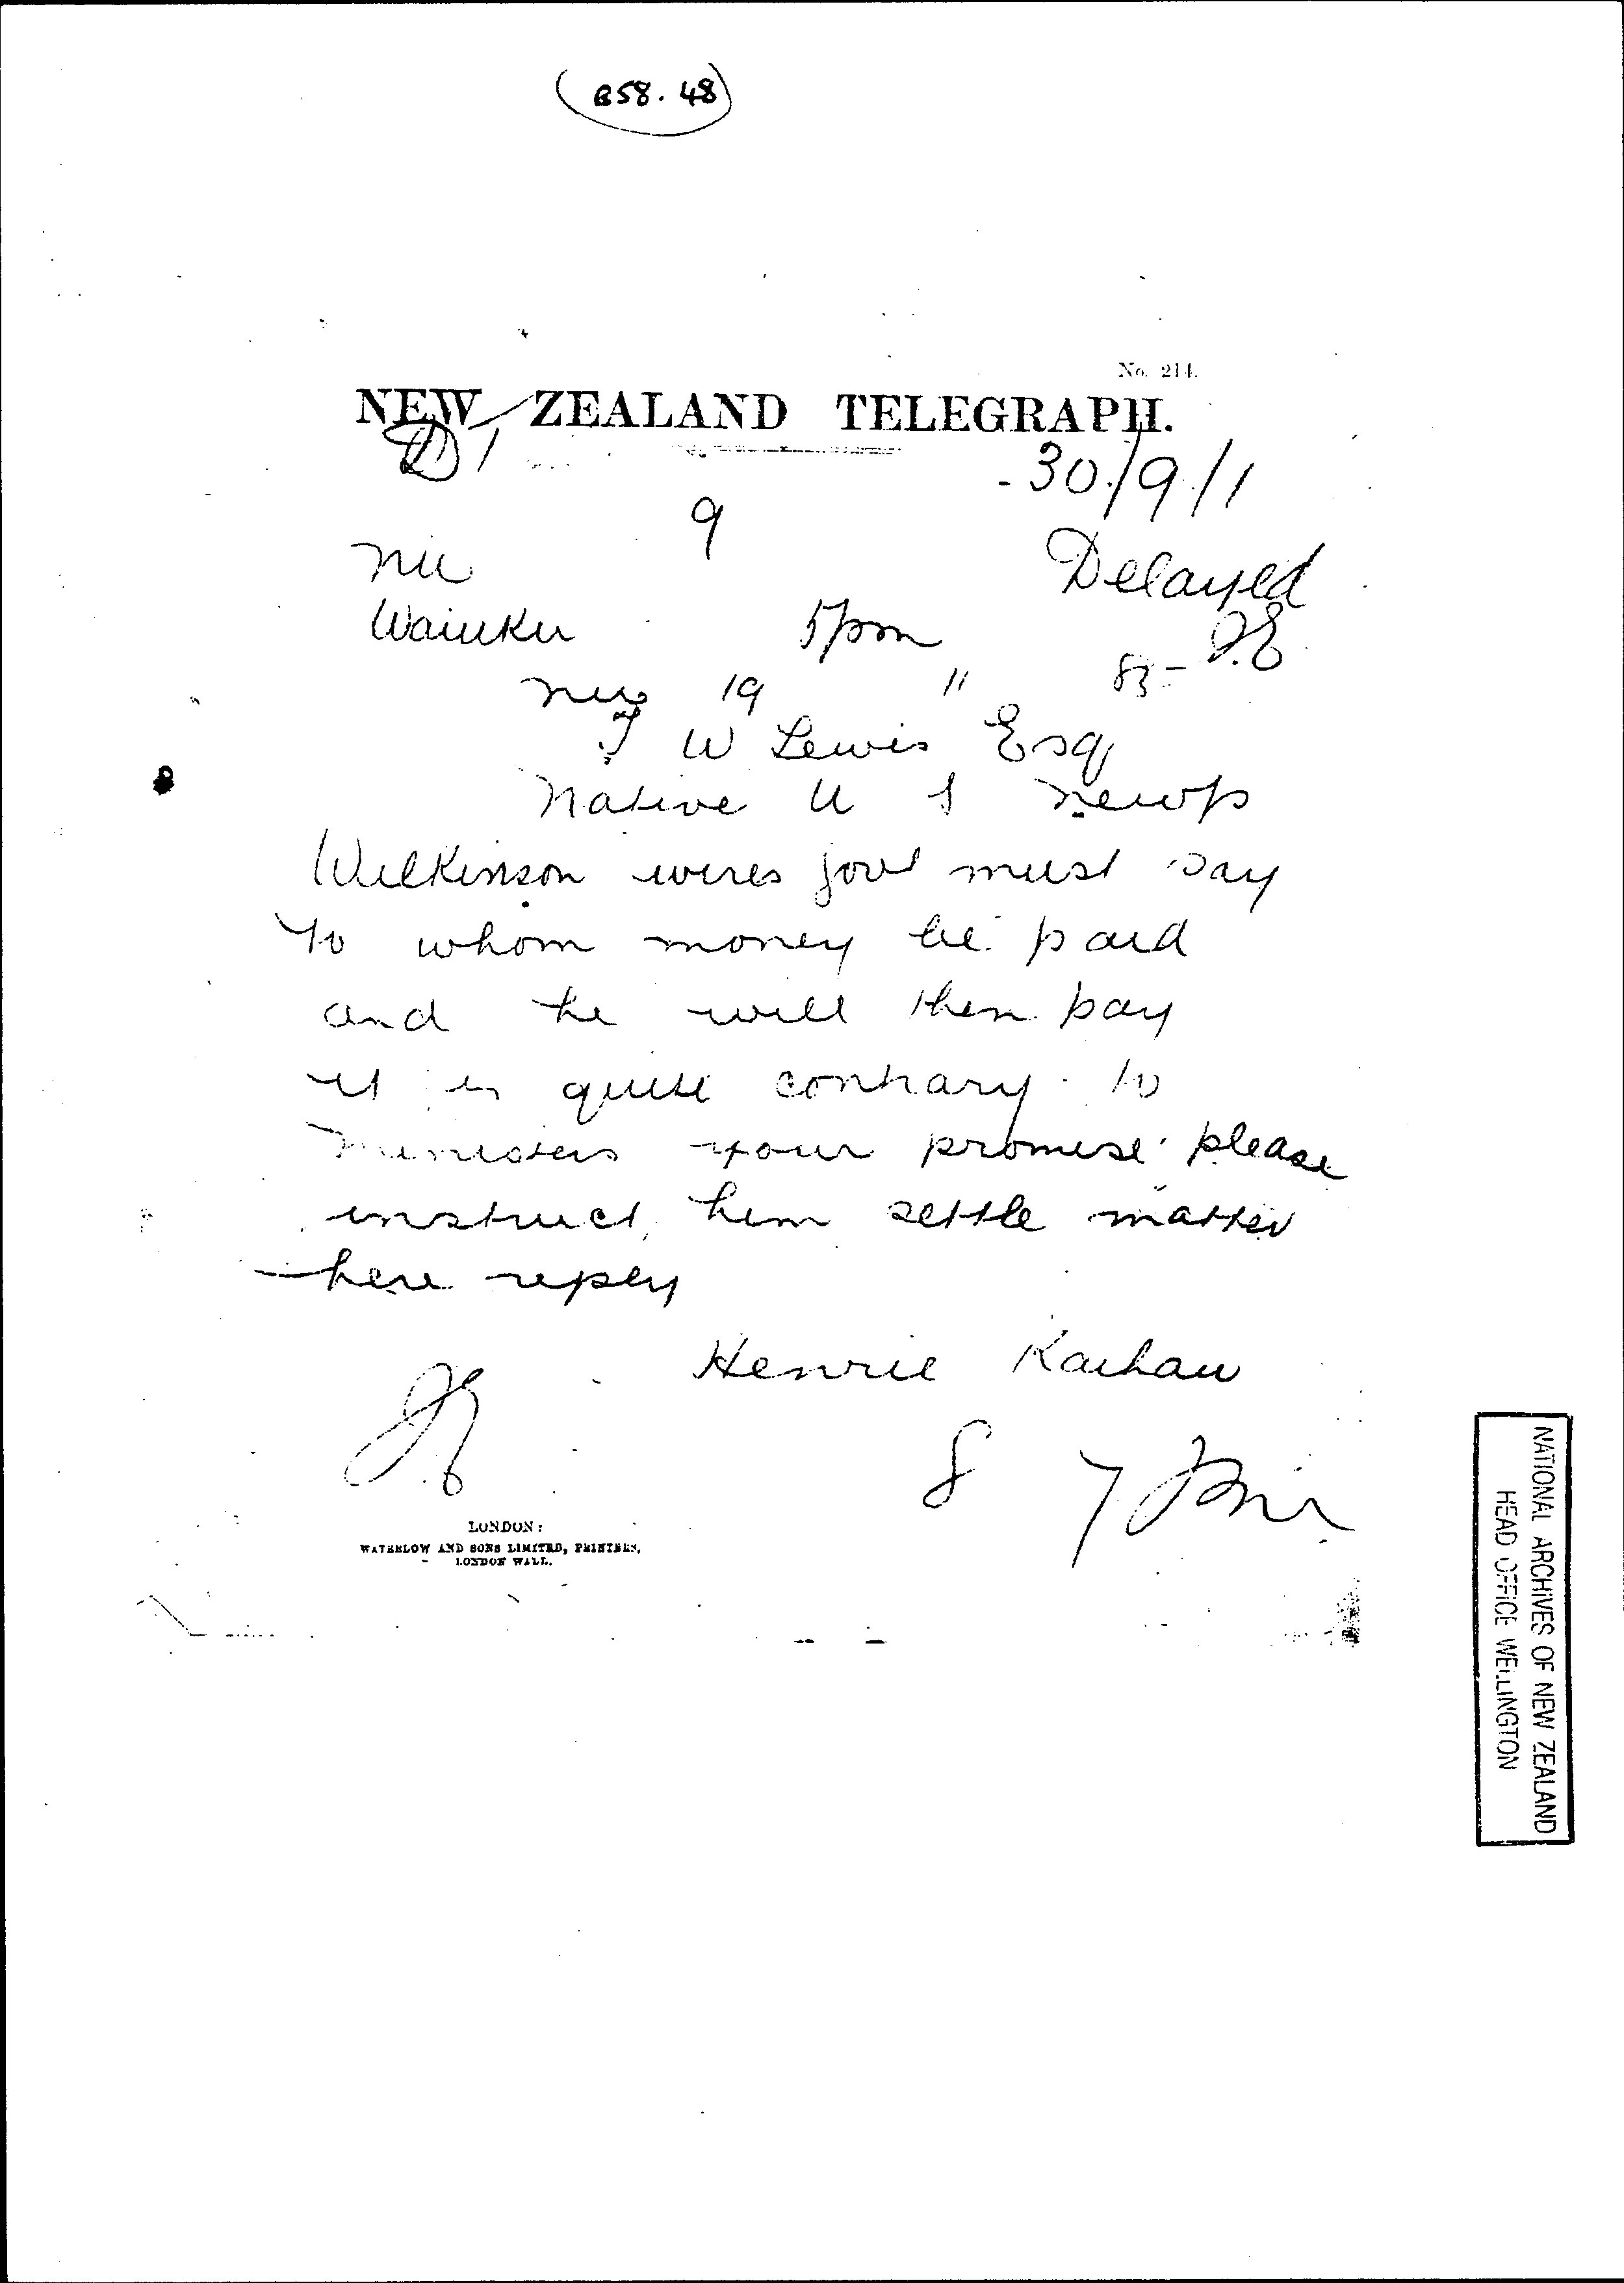 B58.48
No. 214.
NEW ZEALAND TELEGRAPH.
D1
30/9/1
9
Delayed
Waiuku 5pm
19 11 83
T W Lewis Esq
Native U S
Wilkinson wires govt must say
to whom money be paid
and he will then pay
it is quite contrary to
Ministers your promise please
instruct him settle matter
here reply
Henrie Kaihau
LONDON:
WATERLOW AND SONS LIMITED, PRINTERS,
LONDON WALL.
NATIONAL ARCHIVES OF NEW ZEALAND
HEAD OFFICE WELLINGTON